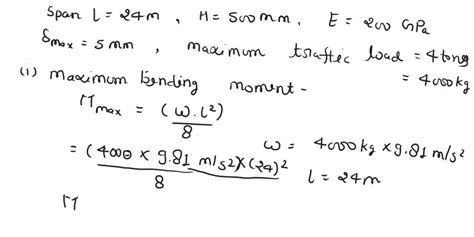 span l = 24m , H = 500mm, E = 200 GPa
δmax = 5mm , maximum traffic load = 4tons
= 4000kg
(i) maximum bending moment -
Mmax = (ω. l²)
8
ω = 4000kg × 9.81 m/s²
= (4000 × 9.81 m/s²)×(24)²
8
l = 24m
M